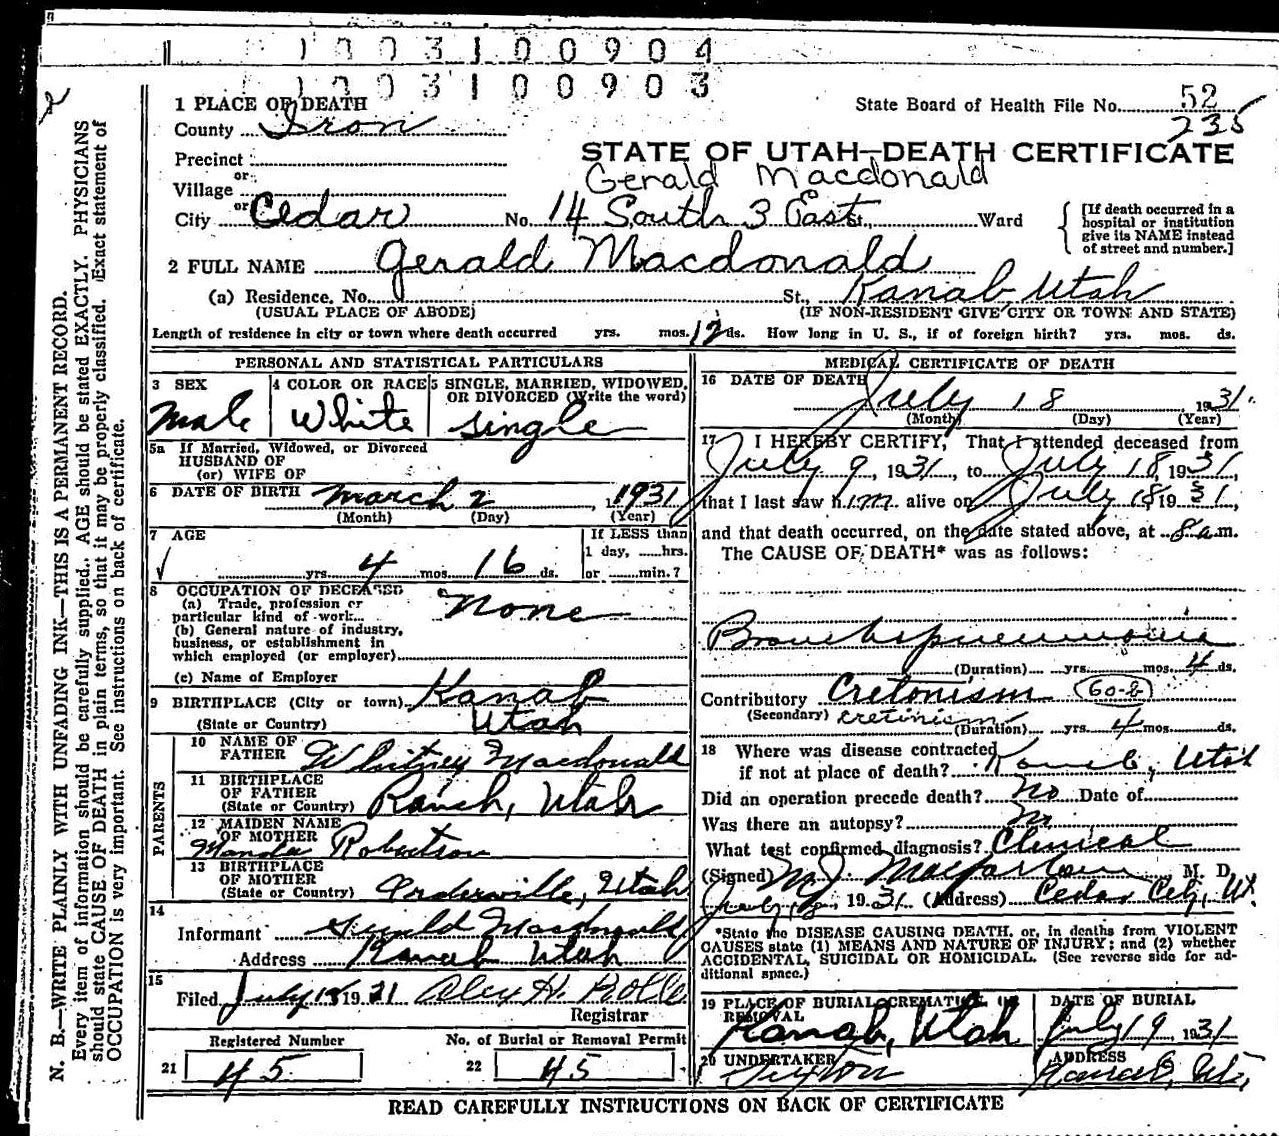 1003100904
1003100903
1 PLACE OF DEATH
State Board of Health File No. 52
235
County Iron
STATE OF UTAH—DEATH CERTIFICATE
Precinct
or
Gerald Macdonald
Village
or
City Cedar No. 14 South 3 East St. Ward
[If death occurred in a hospital or institution give its NAME instead of street and number.]
2 FULL NAME Gerald Macdonald
(a) Residence. No. St., Kanab, Utah
(USUAL PLACE OF ABODE) (IF NON-RESIDENT GIVE CITY OR TOWN AND STATE)
Length of residence in city or town where death occurred yrs. mos. 12 ds. How long in U. S., if of foreign birth? yrs. mos. ds.
PERSONAL AND STATISTICAL PARTICULARS
3 SEX 4 COLOR OR RACE 5 SINGLE, MARRIED, WIDOWED, OR DIVORCED (Write the word)
Male White Single
5a If Married, Widowed, or Divorced
HUSBAND OF
(or) WIFE OF
6 DATE OF BIRTH March 2, 1931
(Month) (Day) (Year)
7 AGE If LESS than
1 day, hrs.
yrs. 4 mos. 16 ds. or min.?
8 OCCUPATION OF DECEASED
(a) Trade, profession or
particular kind of work None
(b) General nature of industry,
business, or establishment in
which employed (or employer)
(c) Name of Employer
9 BIRTHPLACE (City or town) Kanab
(State or Country) Utah
PARENTS
10 NAME OF
FATHER Whitney Macdonald
11 BIRTHPLACE
OF FATHER
(State or Country) Kanab, Utah
12 MAIDEN NAME
OF MOTHER Robertson
13 BIRTHPLACE
OF MOTHER
(State or Country) Orderville, Utah
14
Informant Macdonald
Address Kanab Utah
15
Filed July 18 19 31 Alex H. Rolle
Registrar
Registered Number No. of Burial or Removal Permit
21 45 22 45
MEDICAL CERTIFICATE OF DEATH
16 DATE OF DEATH
July 18 1931.
(Month) (Day) (Year)
17 I HEREBY CERTIFY, That I attended deceased from
July 9, 1931, to July 18, 1931,
that I last saw him alive on July 18, 1931,
and that death occurred, on the date stated above, at 8 a.m.
The CAUSE OF DEATH* was as follows:
Bronchopneumonia
(Duration) yrs. mos. 4 ds.
Contributory Cretonism 60-2
(Secondary) cretinism
(Duration) yrs. 4 mos. ds.
18 Where was disease contracted
if not at place of death? Kanab, Utah
Did an operation precede death? No Date of
Was there an autopsy? No
What test confirmed diagnosis? Clinical
(Signed) M. J. Macfarlane M. D.
July 18, 1931 (Address) Cedar City, Ut.
*State the DISEASE CAUSING DEATH, or, in deaths from VIOLENT
CAUSES state (1) MEANS AND NATURE OF INJURY; and (2) whether
ACCIDENTAL, SUICIDAL OR HOMICIDAL. (See reverse side for ad-
ditional space.)
19 PLACE OF BURIAL, CREMATION OR REMOVAL DATE OF BURIAL
Kanab, Utah July 19 1931
20 UNDERTAKER ADDRESS
Kanab, Ut,
READ CAREFULLY INSTRUCTIONS ON BACK OF CERTIFICATE
N. B.—WRITE PLAINLY WITH UNFADING INK—THIS IS A PERMANENT RECORD.
Every item of information should be carefully supplied. AGE should be stated EXACTLY. PHYSICIANS
should state CAUSE OF DEATH in plain terms, so that it may be properly classified. Exact statement of
OCCUPATION is very important. See instructions on back of certificate.